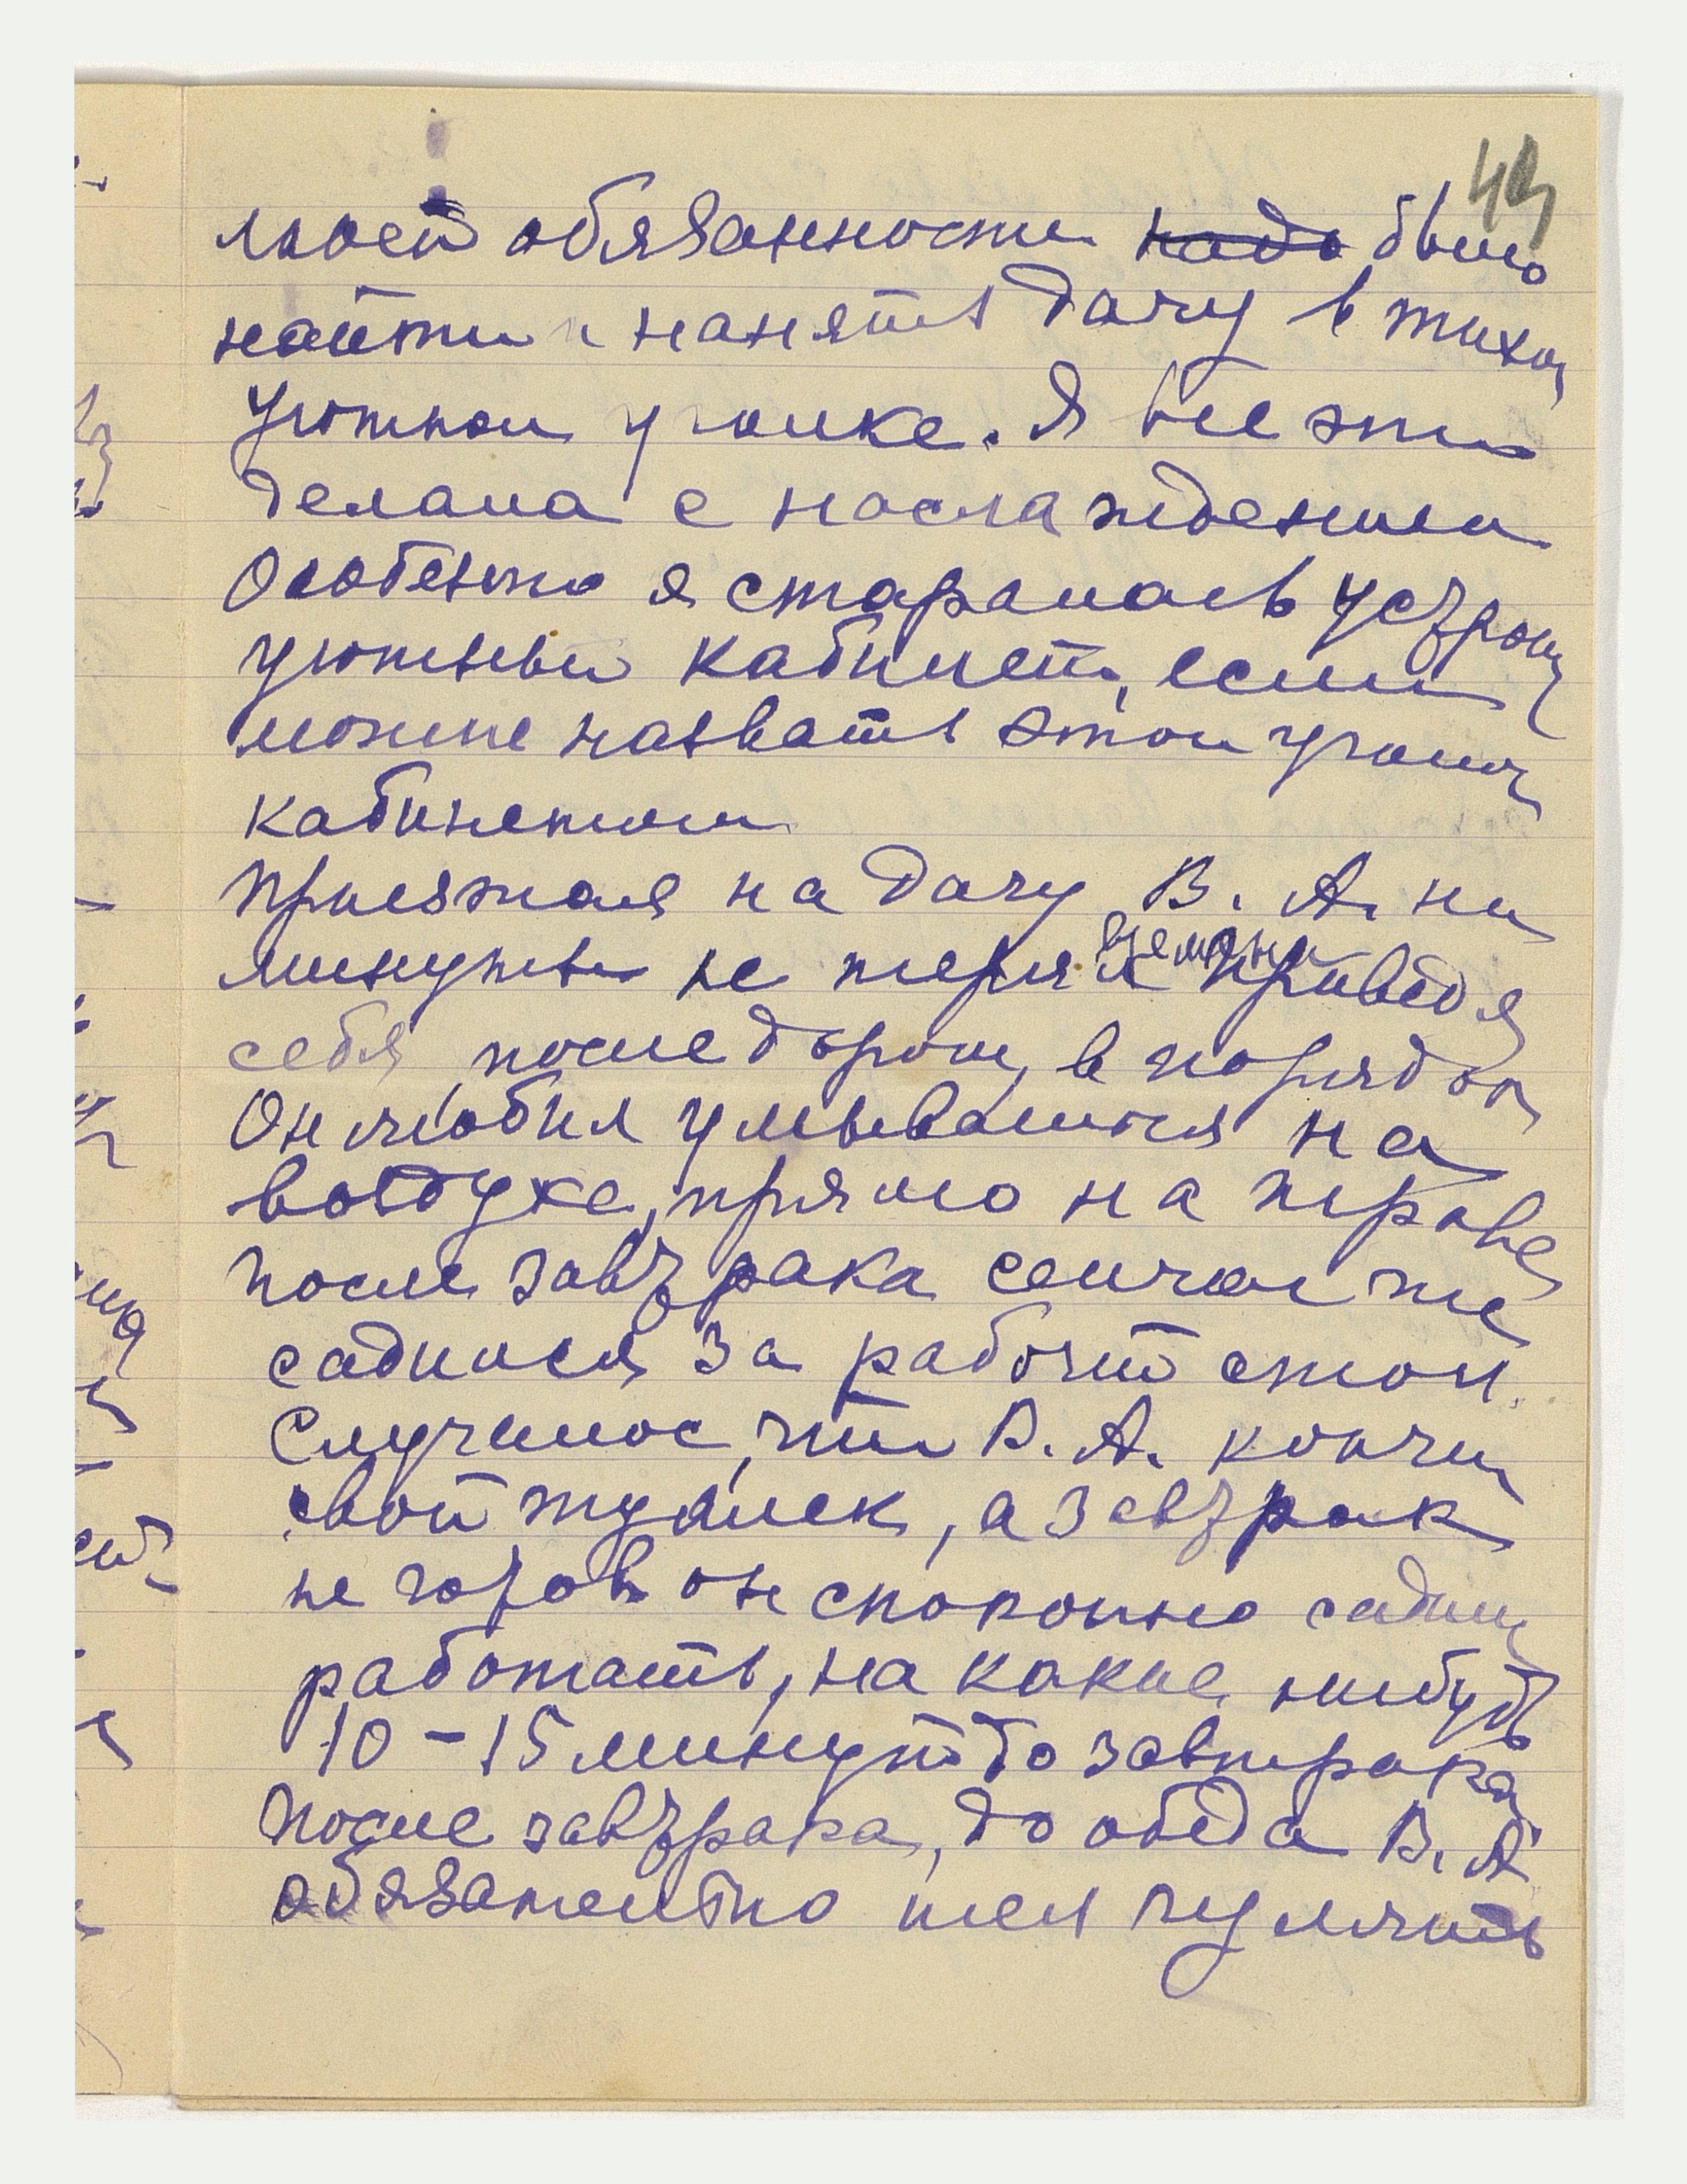 44
моей обязанности надо было
найти и нанять дачу в тихом
уютном уголке. Я все это
делала с наслаждением
Особенно я старалась устроить
уютный кабинет, если
можно назвать этот уголок
кабинетом
Приезжая на дачу В. А. ни
минуты не теряя времени приводя
себя, после дороги, в порядок
Он любил умываться на
воздухе, прямо на траве
после завтрака сейчас же
садился за рабочий стол.
Случалось, что В. А. кончил
свой туалет, а завтрак
не готов он спокойно садился
работать, на какие нибудь
10-15 минут до завтрака
После завтрака, до обеда В. А.
обязательно шел гулять